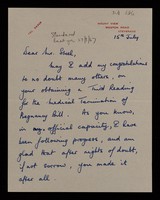 15th July
Dear Mr. Steel,
May I add my congratulations
to no doubt many others, on
your obtaining a Third Reading
for the Medical Termination of
Pregnancy Bill. As you know,
in my official capacity, I have
been following progress, and am
glad that after nights of doubt,
if not sorrow, you made it
after all.